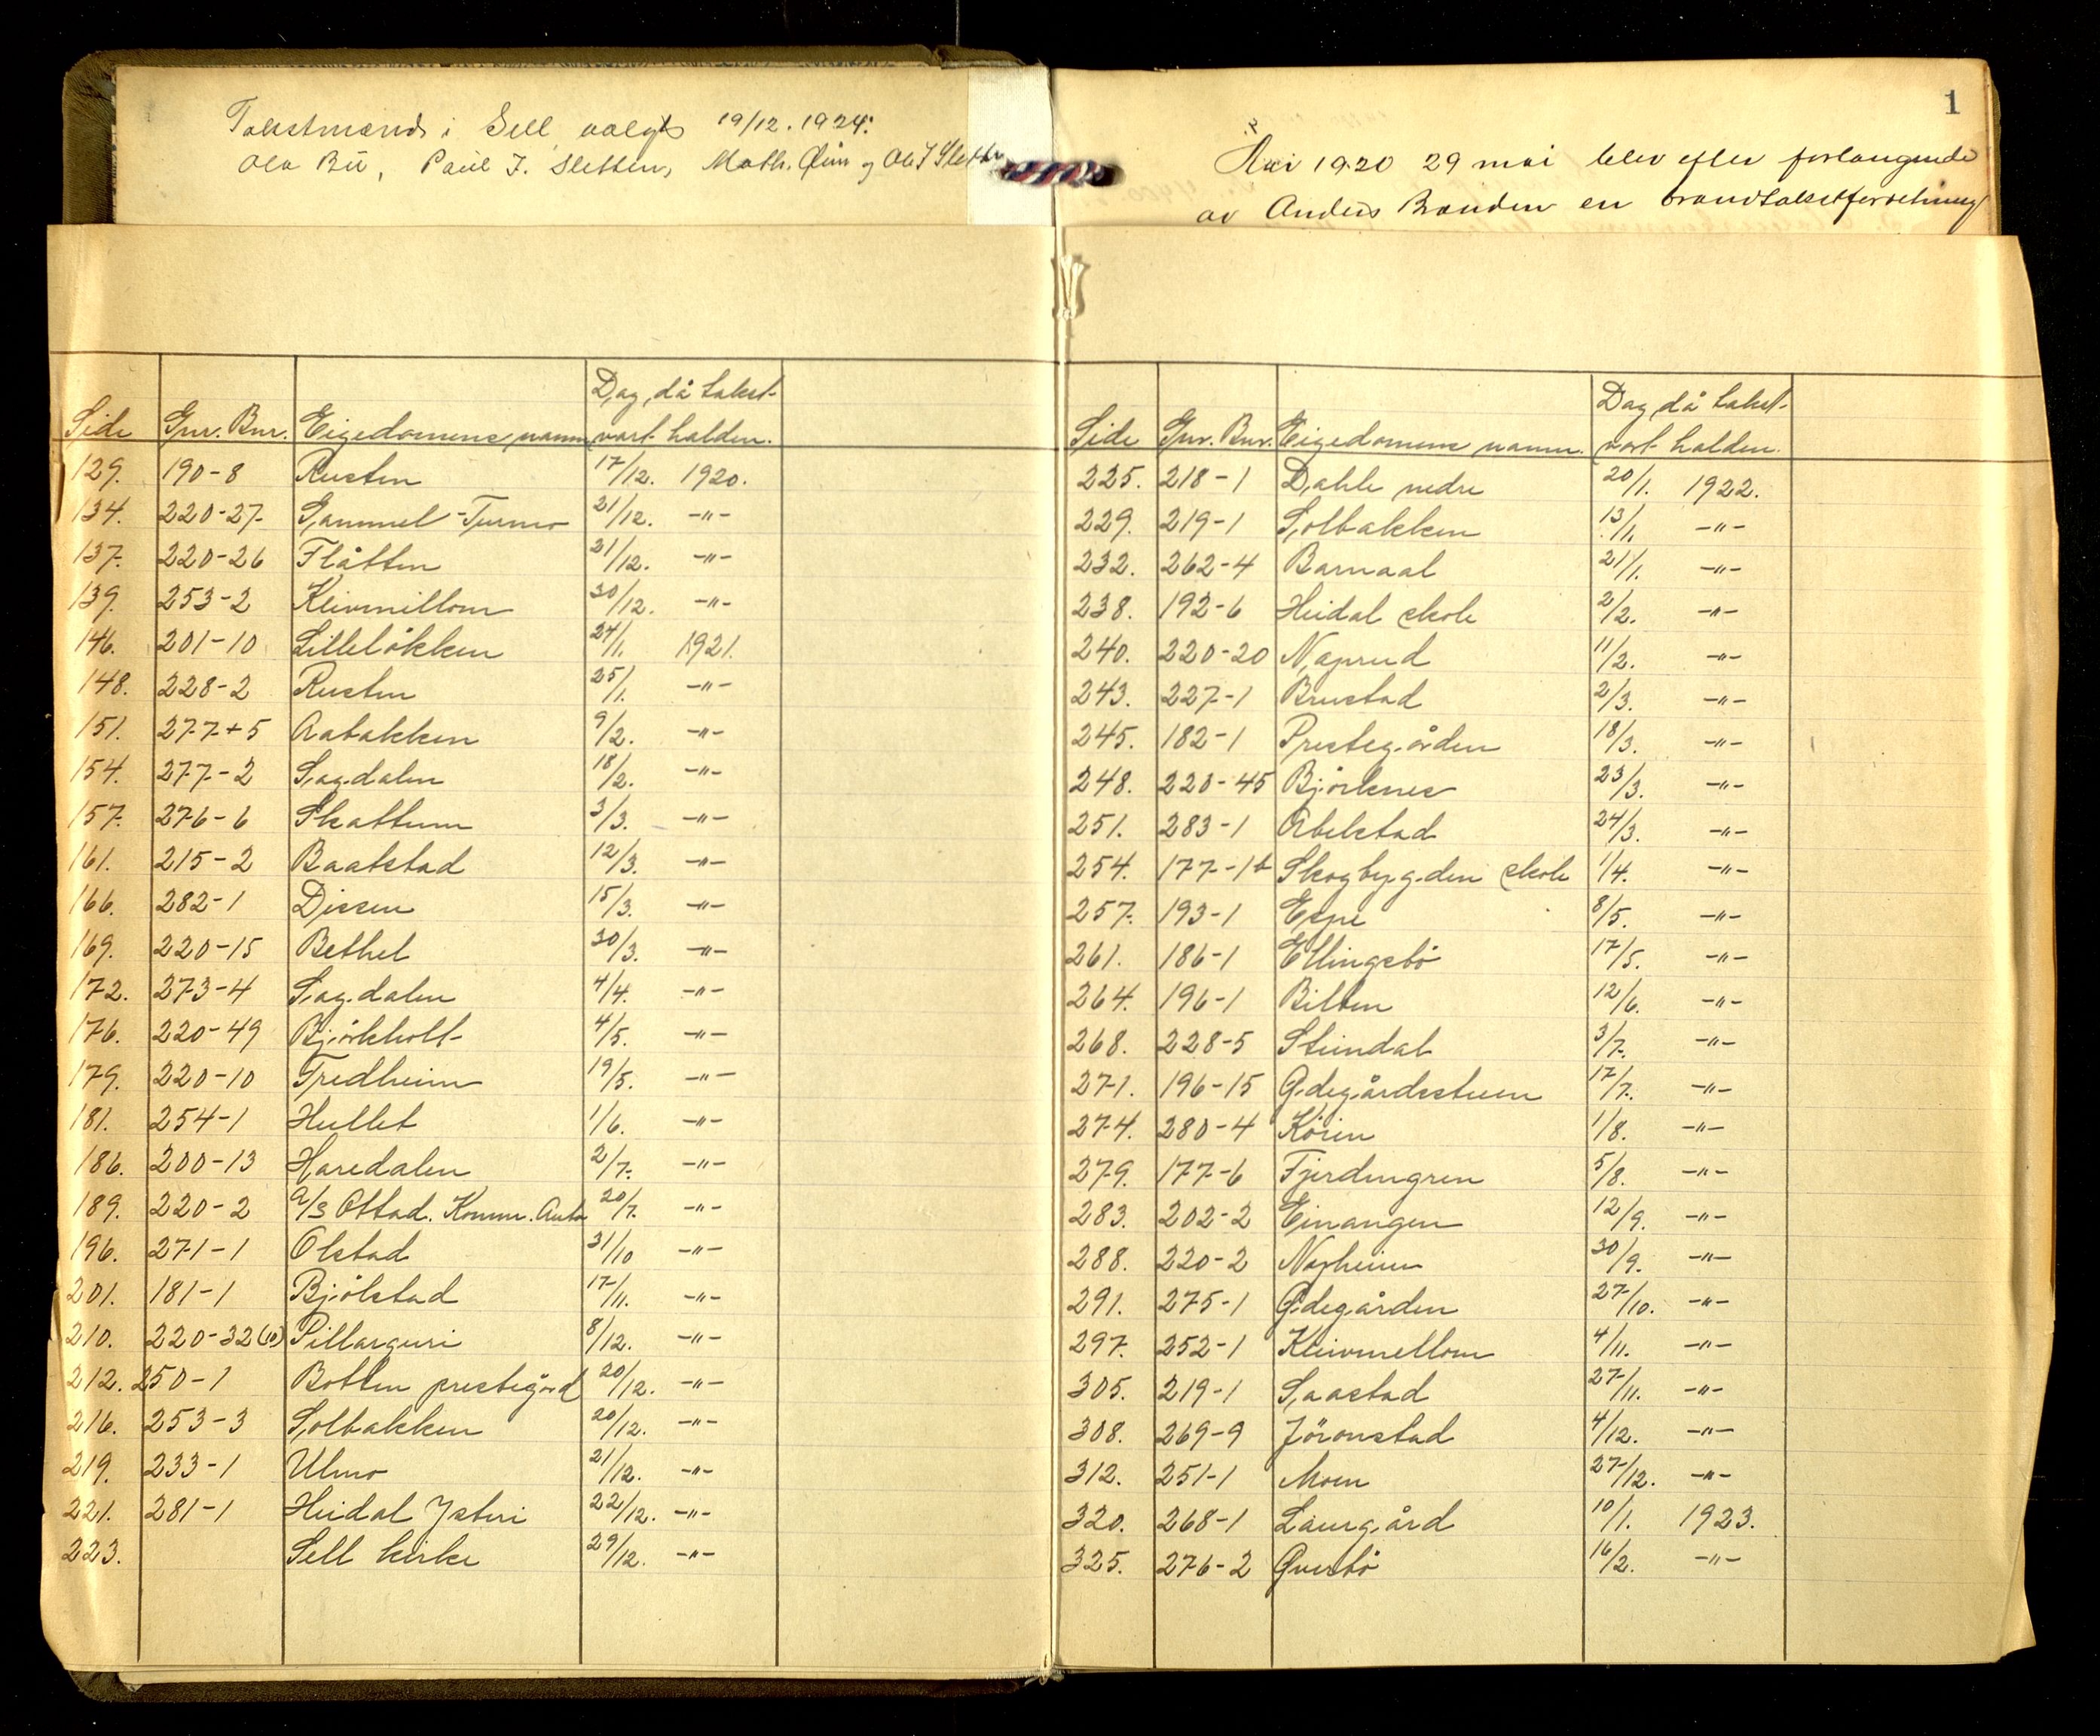 Takstmænd i Sell valgt 19/12. 1924:
Ola Bu, Paul J. Sletten, Math. Øien og Ole J Sletten
Side Gnr. Bnr. Eigedomens namn Dag, då takst-
vart halden.
129. 190-8 Rusten 17/12. 1920.
134. 220-27 Gammel-Turmo 21/12. -"-
137. 220-26 Flåtten 21/12. -"-
139. 253-2 Kleivmillom 30/12. -"-
146. 201-10 Lilleløkken 24/1. 1921.
148. 228-2 Rusten 25/1. -"-
151. 277+5 Aabakken 9/2. -"-
154. 277-2 Sagdalen 18/2. -"-
157. 276-6 Skattum 3/3. -"-
161. 215-2 Baatstad 12/3. -"-
166. 282-1 Dissen 15/3. -"-
169. 220-15 Bethel 30/3. -"-
172. 273-4 Sagdalen 4/4. -"-
176. 220-49 Bjørkholt 4/5. -"-
179. 220-10 Fredheim 19/5. -"-
181. 254-1 Hullet 1/6. -"-
186. 200-13 Haredalen 2/7. -"-
189. 220-2 A/S Ottad. Komm. Auto 20/7. -"-
196. 271-1 Olstad 31/10 -"-
201. 181-1 Bjølstad 17/11. -"-
210. 220-32(10) Pillarguri 8/12. -"-
212. 250-1 Botten prestegård 20/12. -"-
216. 253-3 Solbakken 20/12. -"-
219. 233-1 Ulmo 21/12. -"-
221. 281-1 Heidal Ysteri 22/12. -"-
223. Sell kirke 29/12. -"-
1
Aar 1920 29 mai blev efter forlangende
av Anders Randen en brandtakstforretning
Side Gnr. Bnr. Eigedomens namn. Dag, då takst-
vart halden.
225. 218-1 Dahle nedre 20/1. 1922.
229. 219-1 Solbakken 13/1. -"-
232. 262-4 Barnaal 21/1. -"-
238. 192-6 Heidal skole 2/2. -"-
240. 220-20 Noprud 11/2. -"-
243. 227-1 Brustad 2/3. -"-
245. 182-1 Prestegården 18/3. -"-
248. 220-45 Bjørknes 23/3. -"-
251. 283-1 Abelstad 24/3. -"-
254. 177-1b Skogbygden skole 1/4. -"-
257. 193-1 Espe 8/5. -"-
261. 186-1 Ellingsbø 17/5. -"-
264. 196-1 Bilben 12/6. -"-
268. 228-5 Steindal 3/7. -"-
271. 196-15 Ødegårdsstuen 17/7. -"-
274. 280-4 Køien 1/8. -"-
279. 177-6 Fjerdingren 5/8. -"-
283. 202-2 Einangen 12/9. -"-
288. 220-2 Norheim 30/9. -"-
291. 275-1 Ødegården 27/10. -"-
297. 252-1 Kleivmellom 4/11. -"-
305. 219-1 Saastad 27/11. -"-
308. 269-9 Jøronstad 4/12. -"-
312. 251-1 Moen 27/12. -"-
320. 268-1 Laurgård 10/1. 1923.
325. 276-2 Øverbø 16/2. -"-